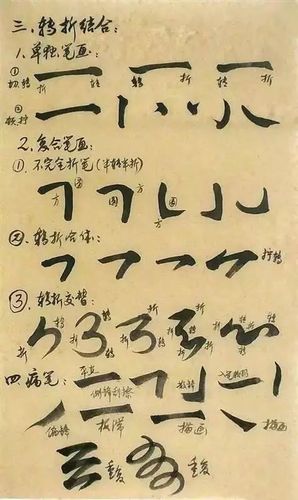 三、转折结合:
1.单独笔画:
① 切转 折 转 转 折 转 折
②
2.复合笔画:
①.不完全折笔(半转半折)
方 圆 圆 方 方
②.转折合体:
③.转折交替:
折 转 折 转 折 转 折 转 折 转 折
四、病笔:
侧锋刮擦
偏锋 板滞 描画 描画
重复 重复